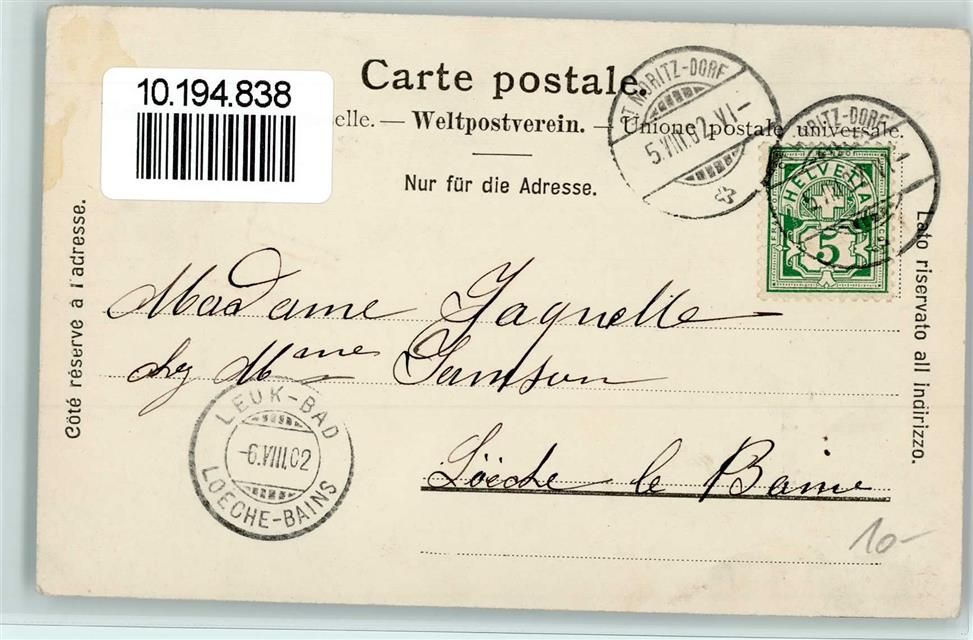 Carte postale.
10.194.838
elle. — Weltpostverein. — Unione postale universale.
Nur für die Adresse.
ST MORITZ-DORF
5.VIII.02.VI-
MORITZ-DORF
HELVETIA
5
Côté réservé à l'adresse.
Lato riservato all indirizzo.
Madame Jaquelle
chez Mme Samson
Loèche le Bains
LEUK-BAD
-6.VIII.02
LOECHE-BAINS
10-